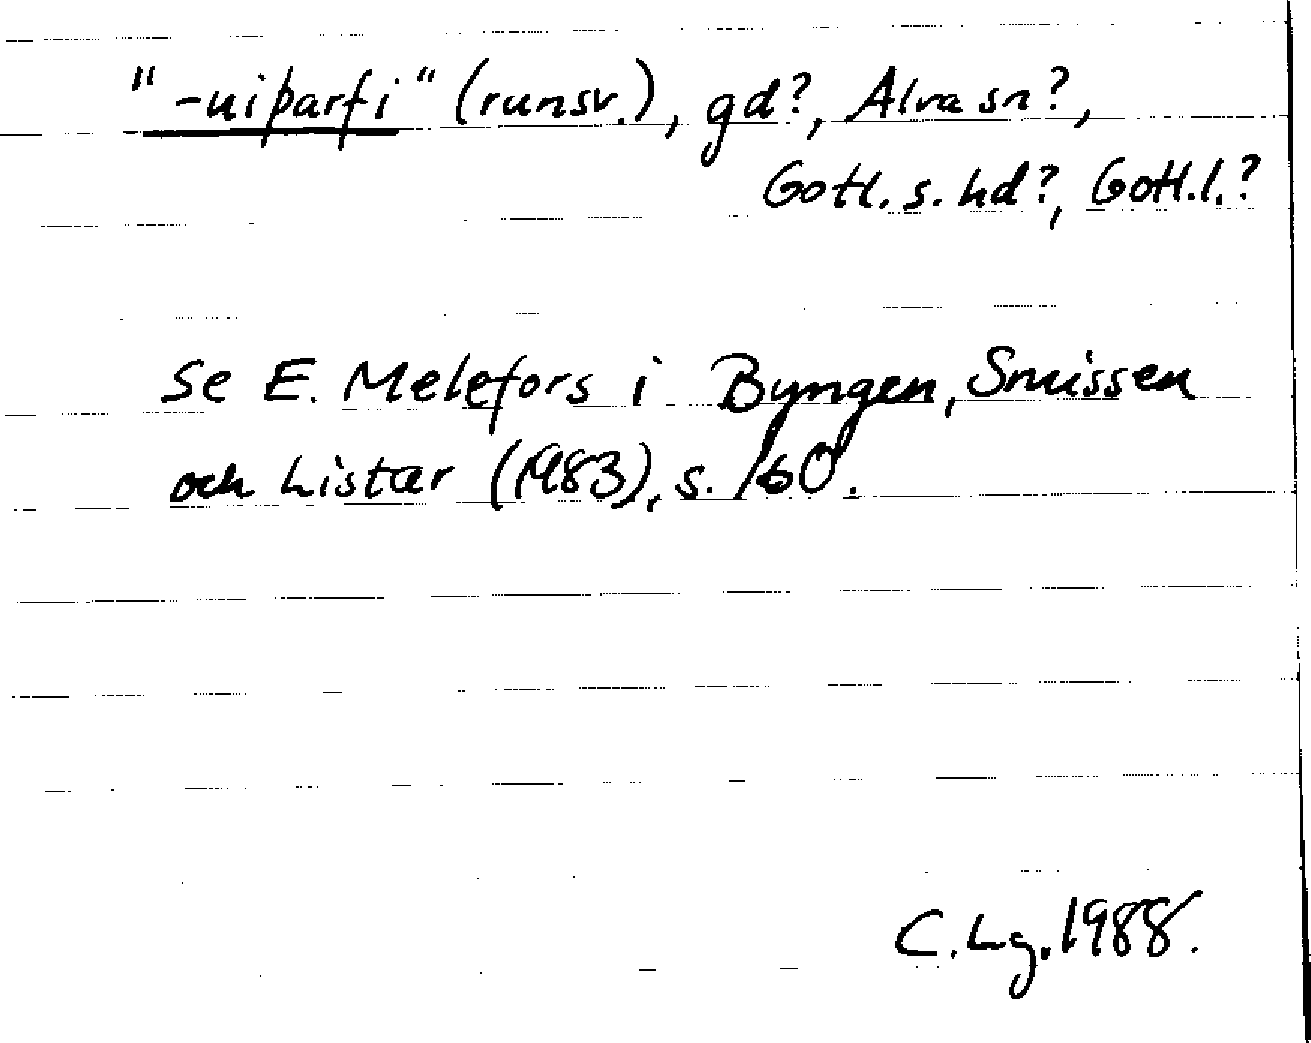 "-uiþarfi" (runsv.), gd?, Alva sn?,
Gotl. s. hd?, Gotl. l.?
Se E. Melefors i Byngen, Snuissen
och Listar (1983), s. 160.
C. Lg. 1988.